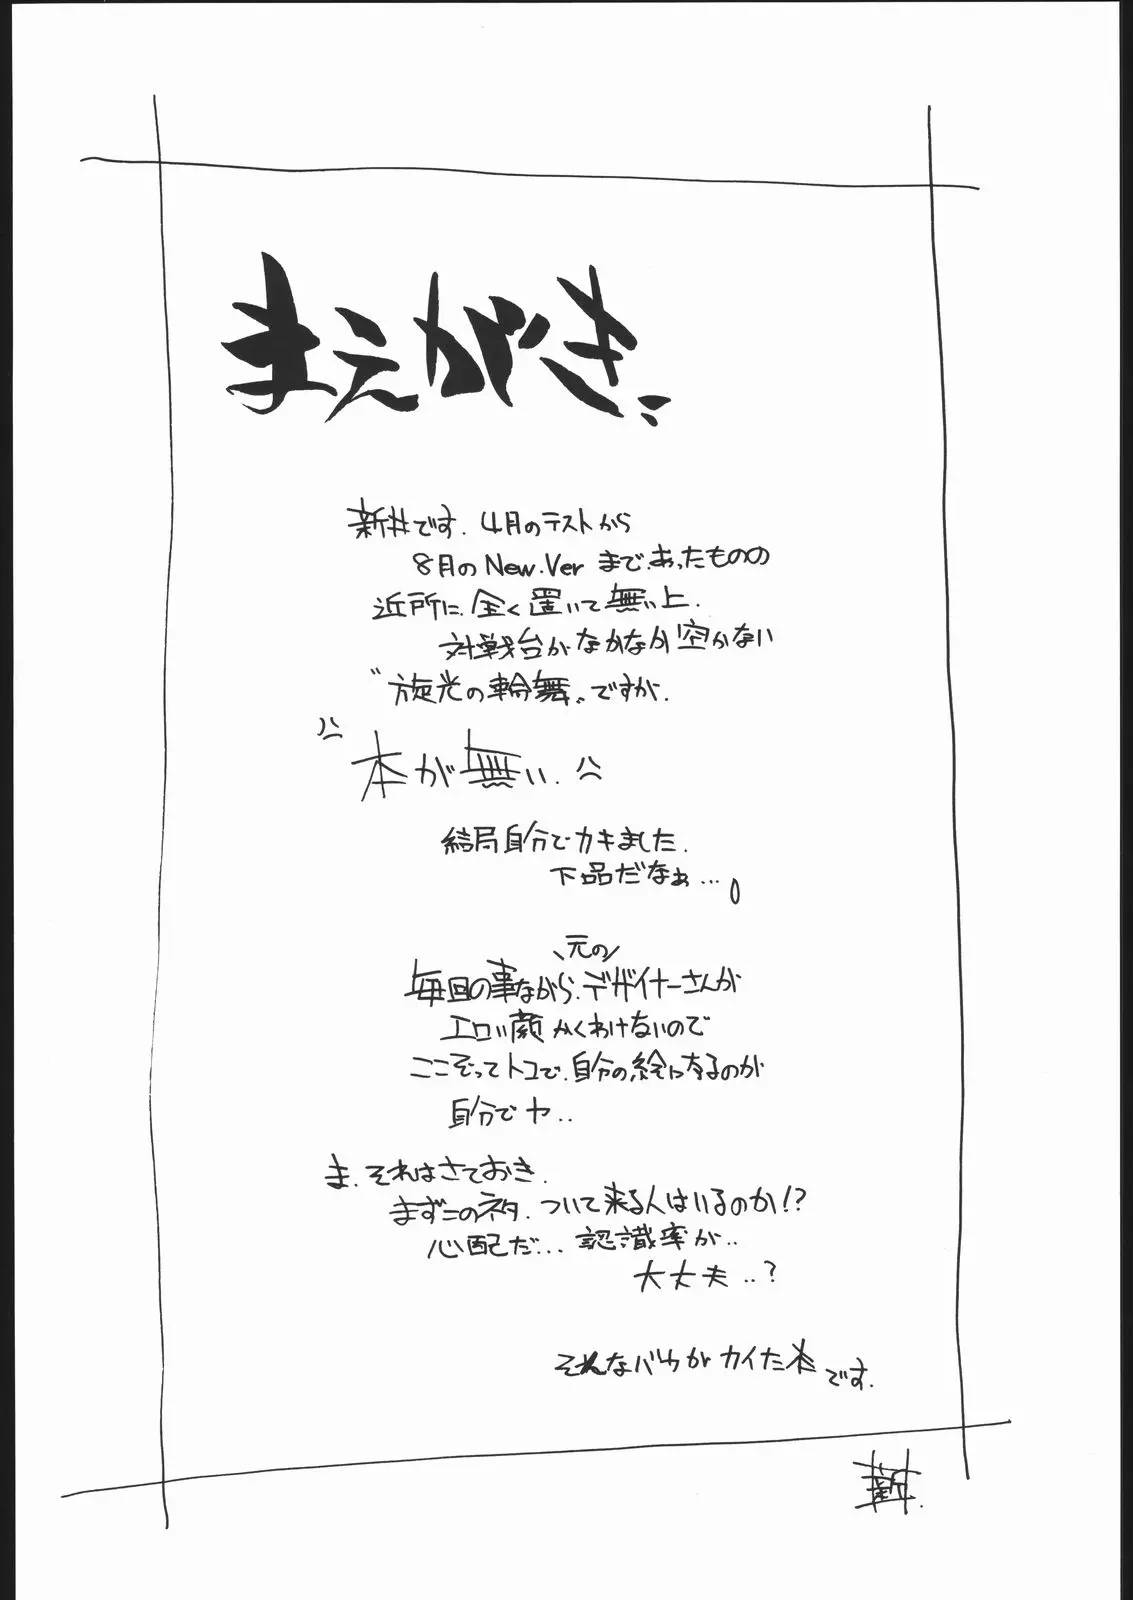 まえがき
新井です. 4月のテストから
8月のNew.Verまで.あったものの
近所に.全く置いて無い上.
対戦台がなかなか空かない
"旋光の輪舞"ですが.
本が無い.
結局自分でカキました.
下品だなぁ...
元の
毎回の事ながら.デザイナーさんが
エロい顔かくわけないので
ここぞってトコで.自分の絵になるのが
自分でヤ..
ま.それはさておき.
まずこのネタ.ついて来る人はいるのか!?
心配だ...認識率が..
大丈夫..?
そんなバカがカイた本です.